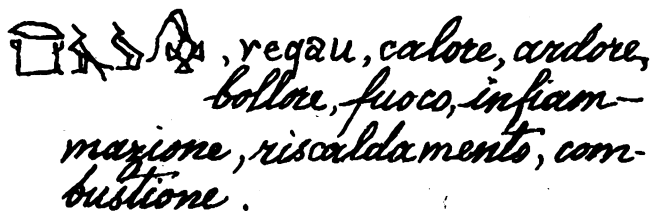 , vegau, calore, ardore,
bollore, fuoco, infiam-
mazione, riscaldamento, com-
bustione.